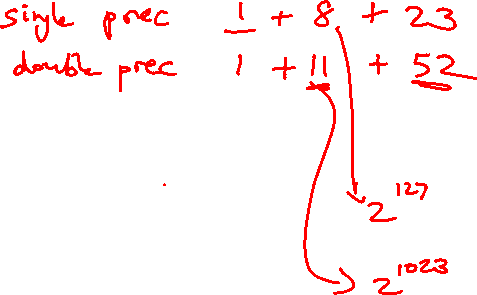 single prec 1 + 8 + 23
double prec 1 + 11 + 52
2^127
2^1023